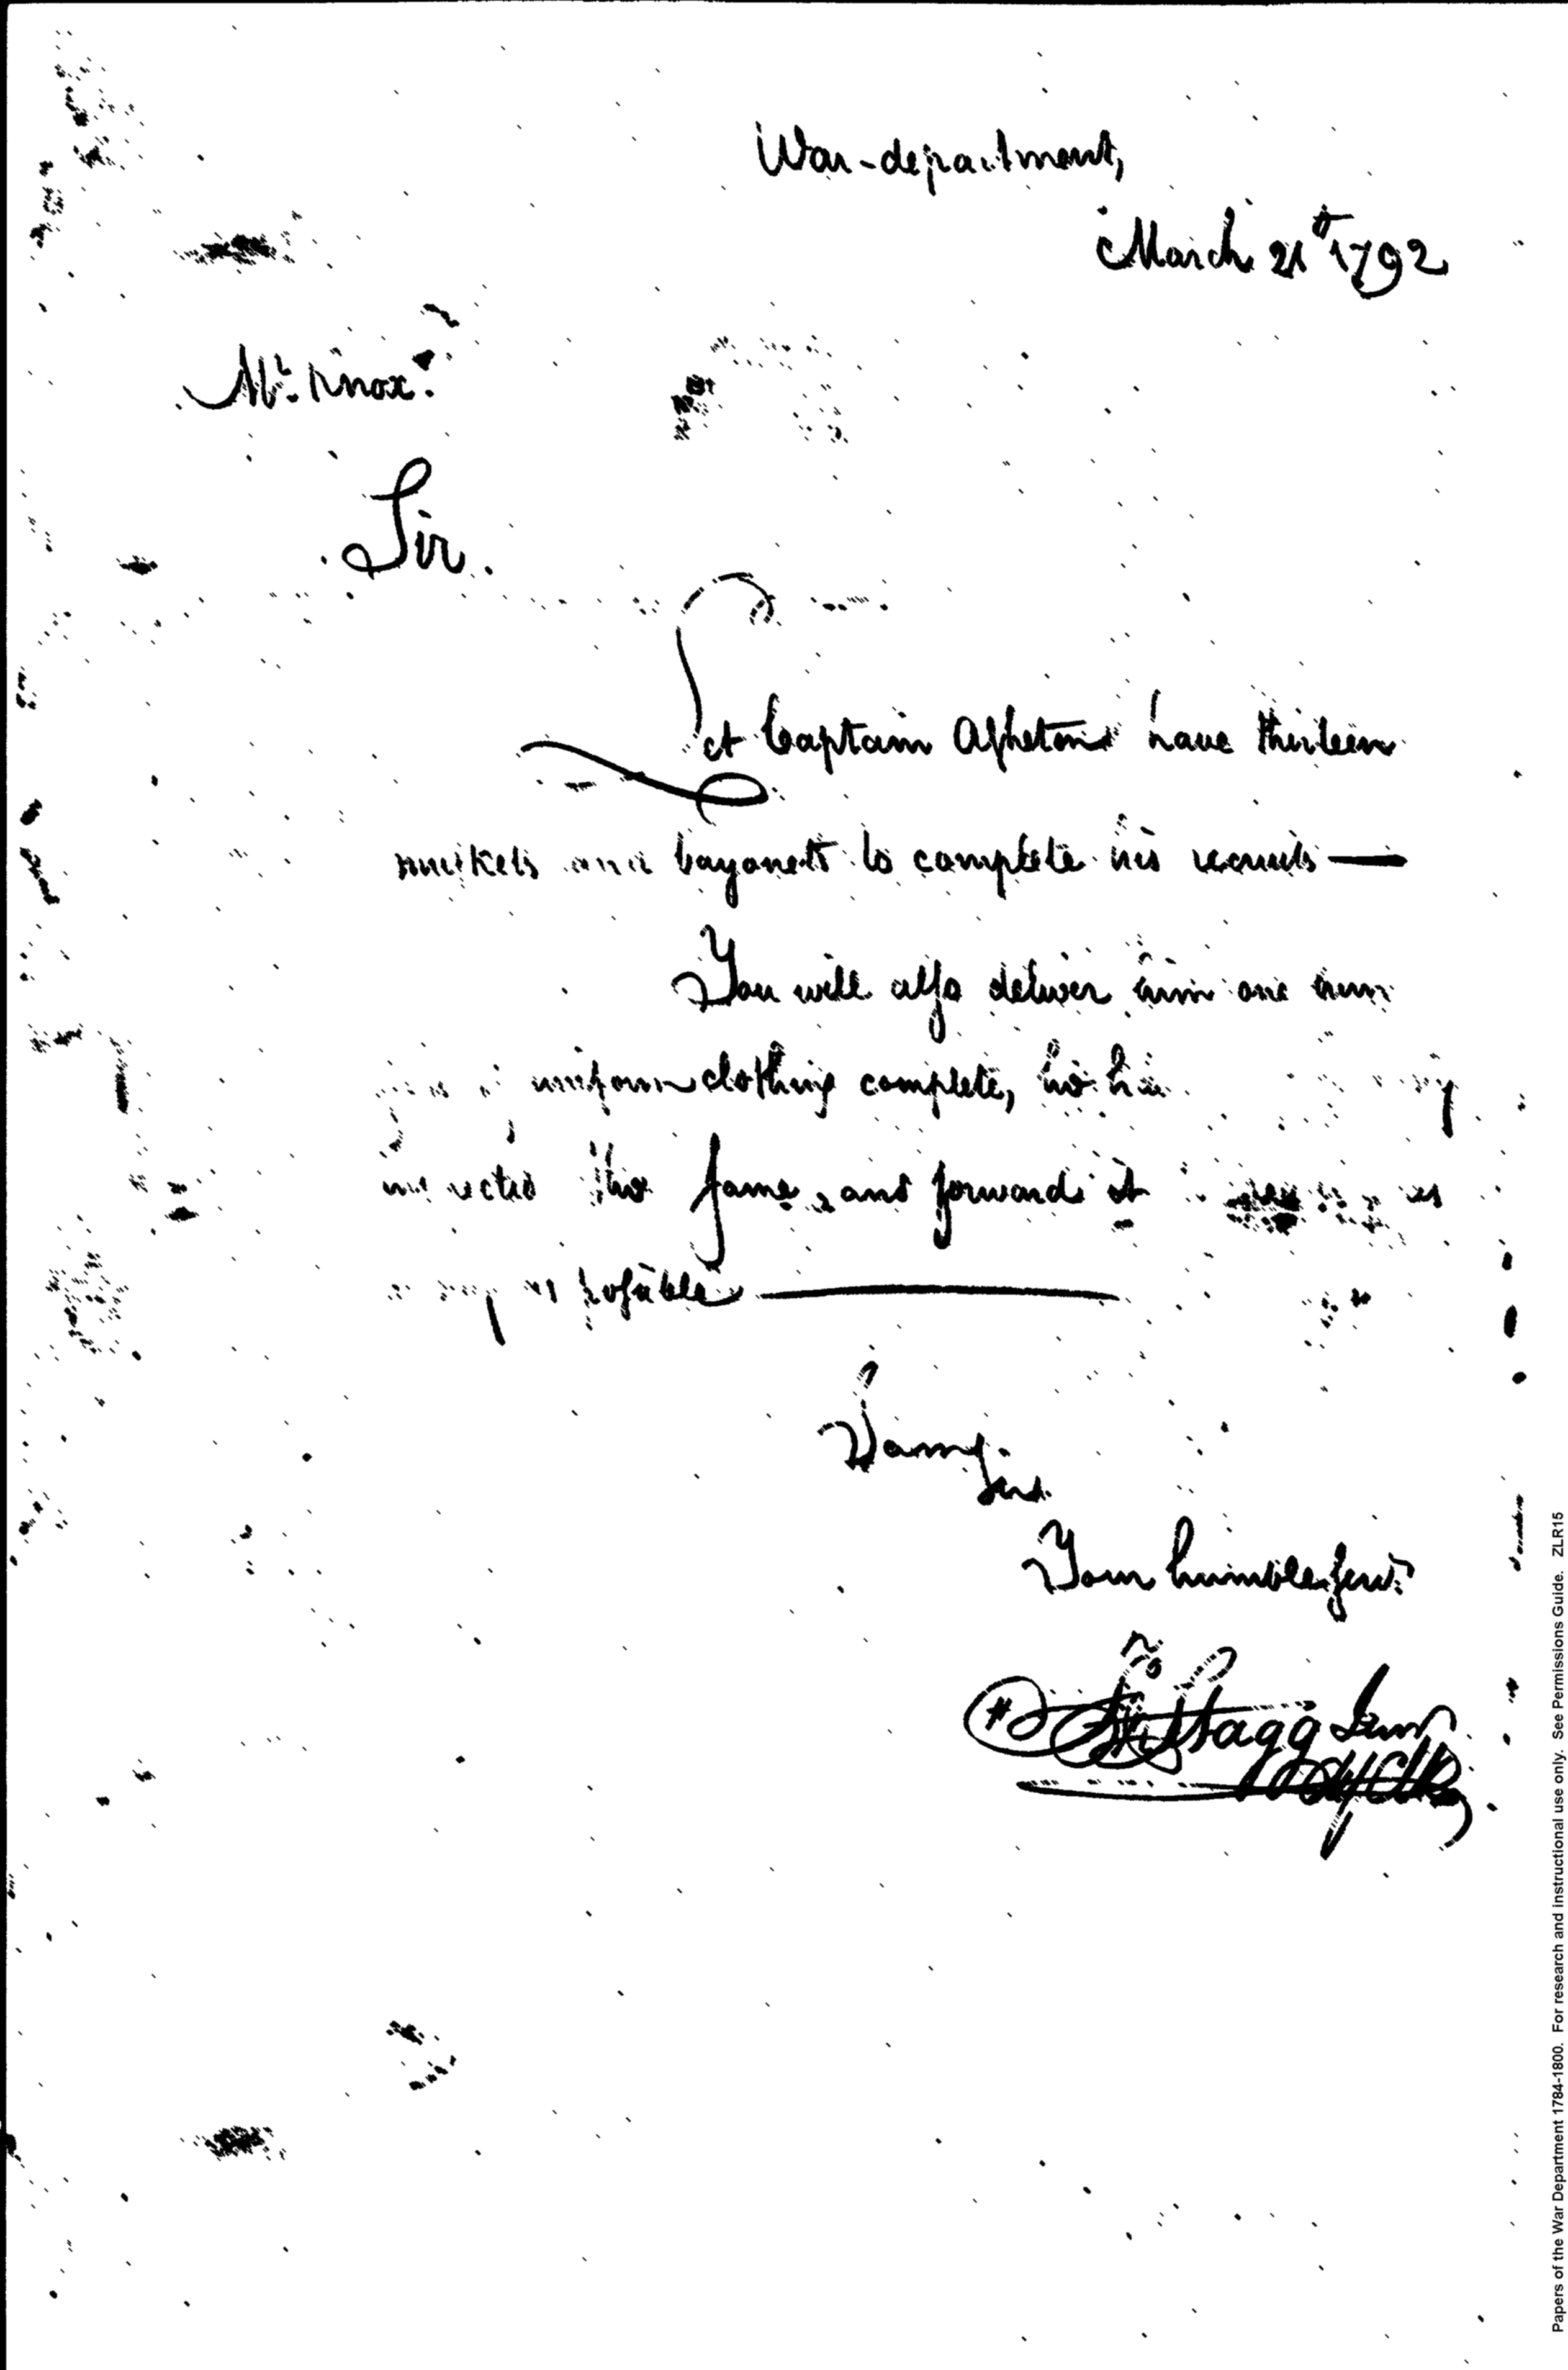 War-department,
March 21st 1792
Mr. Knox.
Sir.
Let Captain Asheton have thirteen
muskets and bayonets to complete his recruits —
You will also deliver him one
uniform clothing complete,
the same, and forward it as
as possible —
I am Sir
Your humble servt.
Jno Stagg Junr
Papers of the War Department 1784-1800. For research and instructional use only. See Permissions Guide. ZLR15